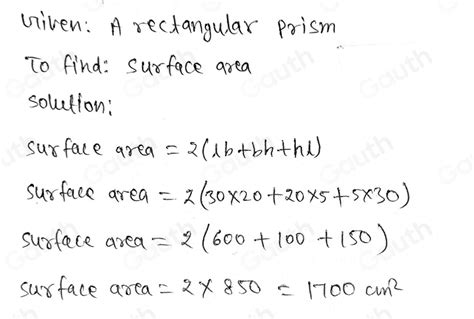 Given: A rectangular prism
To find: surface area
solution:
surface area = 2(lb+bh+hl)
surface area = 2(30×20+20×5+5×30)
surface area = 2(600+100+150)
surface area = 2×850 = 1700 cm²